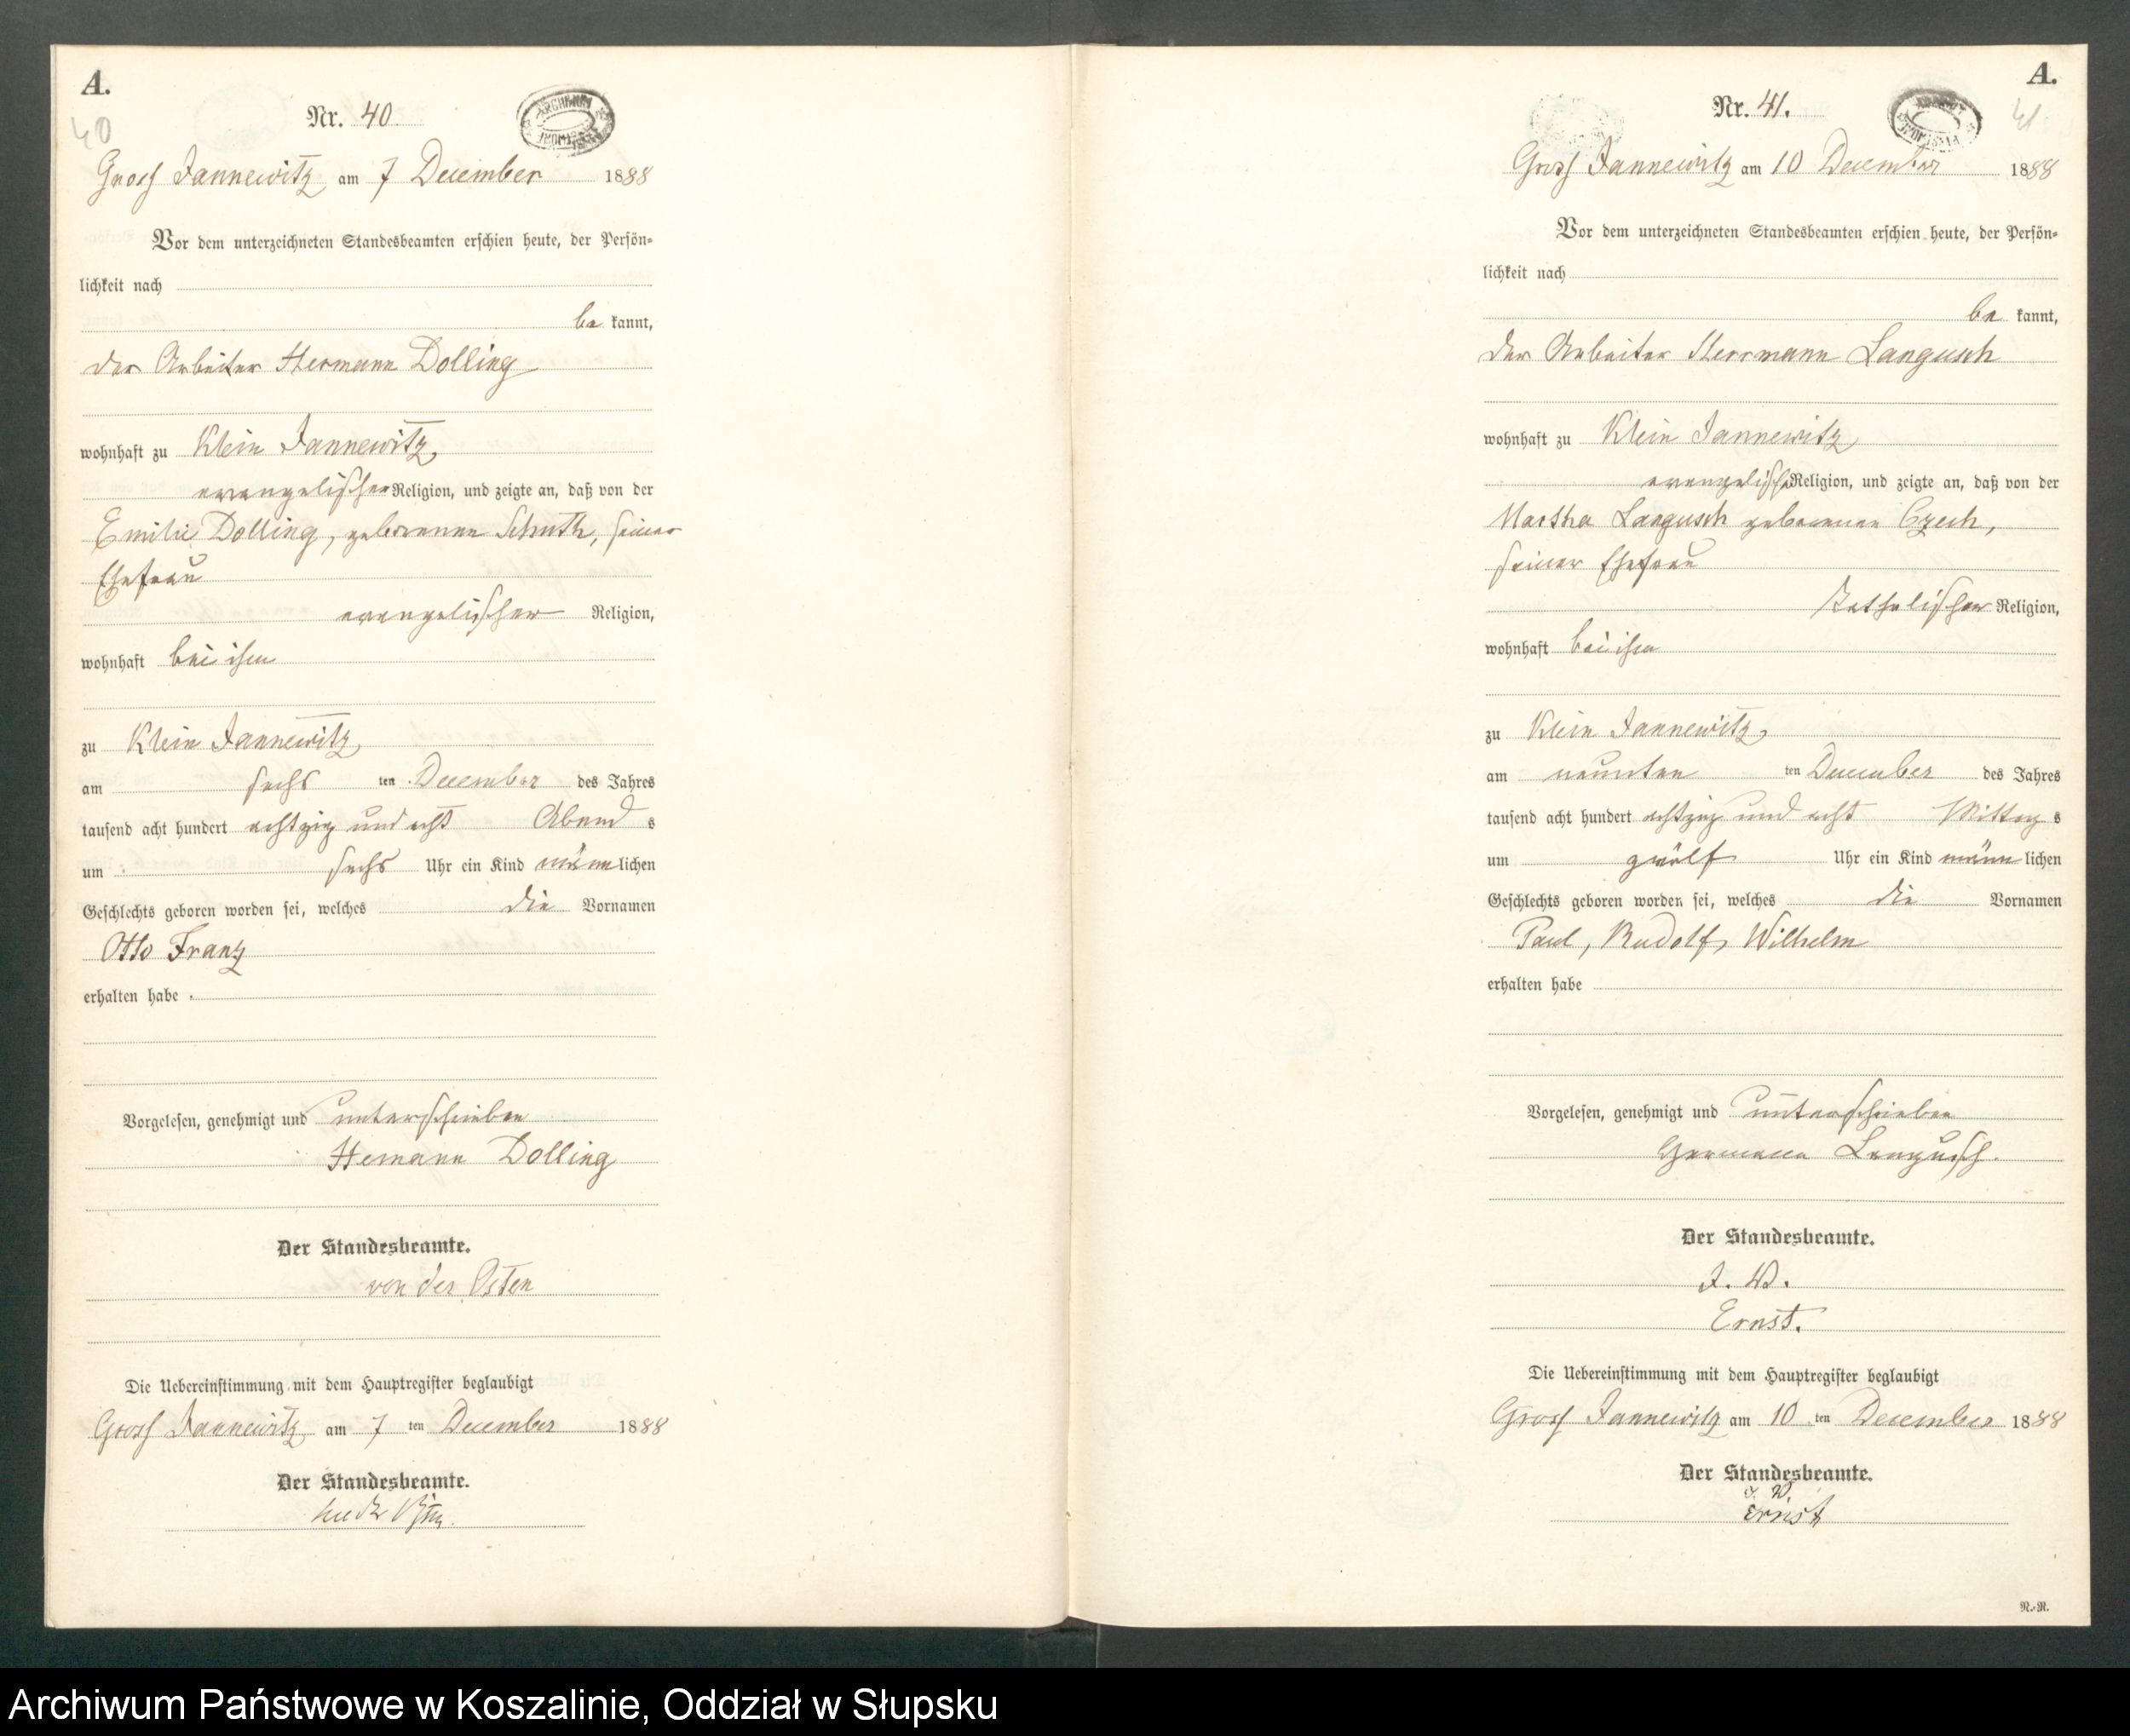 A.
40
Nr. 40
Gross Jannewitz am 7 December 1888
Vor dem unterzeichneten Standesbeamten erschien heute, der Persön-
lichkeit nach
be kannt,
der Arbeiter Hermann Dolling
wohnhaft zu Klein Jannewitz,
evangelischer Religion, und zeigte an, daß von der
Emilie Dolling, geborenen Schuth, seiner
Ehefrau
evangelischer Religion,
wohnhaft bei ihm
zu Klein Jannewitz,
am sechs ten December des Jahres
tausend acht hundert achtzig und acht Abend s
um sechs Uhr ein Kind männ lichen
Geschlechts geboren worden sei, welches die Vornamen
Otto Franz
erhalten habe.
Vorgelesen, genehmigt und unterschrieben
Hemann Dolling
Der Standesbeamte.
von der Osten
Die Uebereinstimmung mit dem Hauptregister beglaubigt
Gross Jannewitz, am 7 ten December 1888
Der Standesbeamte.
A.
41
Nr. 41.
Gross Jannewitz am 10 December 1888
Vor dem unterzeichneten Standesbeamten erschien heute, der Persön-
lichkeit nach
be kannt,
der Arbeiter Herrmann Langusch
wohnhaft zu Klein Jannewitz,
evangelischer Religion, und zeigte an, daß von der
Martha Langusch geborenen Czech,
seiner Ehefrau
katholischer Religion,
wohnhaft bei ihm
zu Klein Jannewitz,
am neunten ten December des Jahres
tausend acht hundert achtzig und acht Mittag s
um zwölf Uhr ein Kind männ lichen
Geschlechts geboren worden sei, welches die Vornamen
Paul, Rudolf, Wilhelm
erhalten habe
Vorgelesen, genehmigt und unterschrieben
Hermann Langusch.
Der Standesbeamte.
J. V.
Ernst.
Die Uebereinstimmung mit dem Hauptregister beglaubigt
Gross Jannewitz am 10 ten December 1888
Der Standesbeamte.
J. V.
Ernst
N.-R.
Archiwum Państwowe w Koszalinie, Oddział w Słupsku